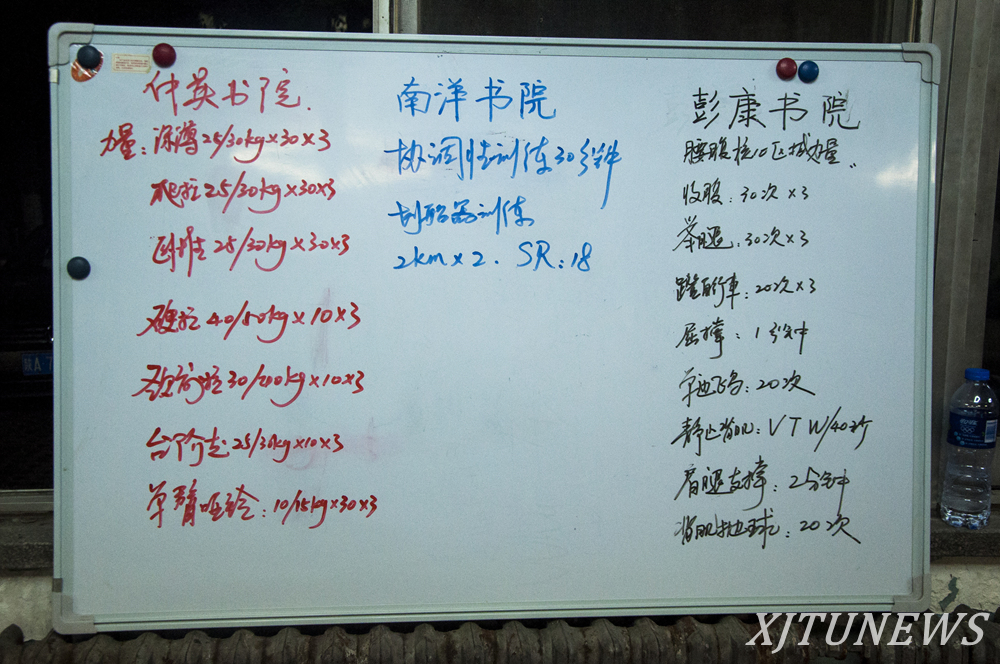 仲英书院.
力量：深蹲25/30kg×30×3
爬拉25/30kg×30×3
卧推25/30kg×30×3
硬拉40/50kg×10×3
30/40kg×10×3
台阶走：25/30kg×10×3
单臂哑铃：10/15kg×30×3
南洋书院
协调性训练30分钟
划船器训练
2km×2. SR：18
彭康书院
腰腹核心区域力量
收腹：30次×3
举腿：30次×3
蹬自行车：20次×3
屈撑：1分钟
单边飞鸟：20次
静止背肌：VTW/40秒
肩腿支撑：2分钟
背肌抛球：20次
XJTUNEWS